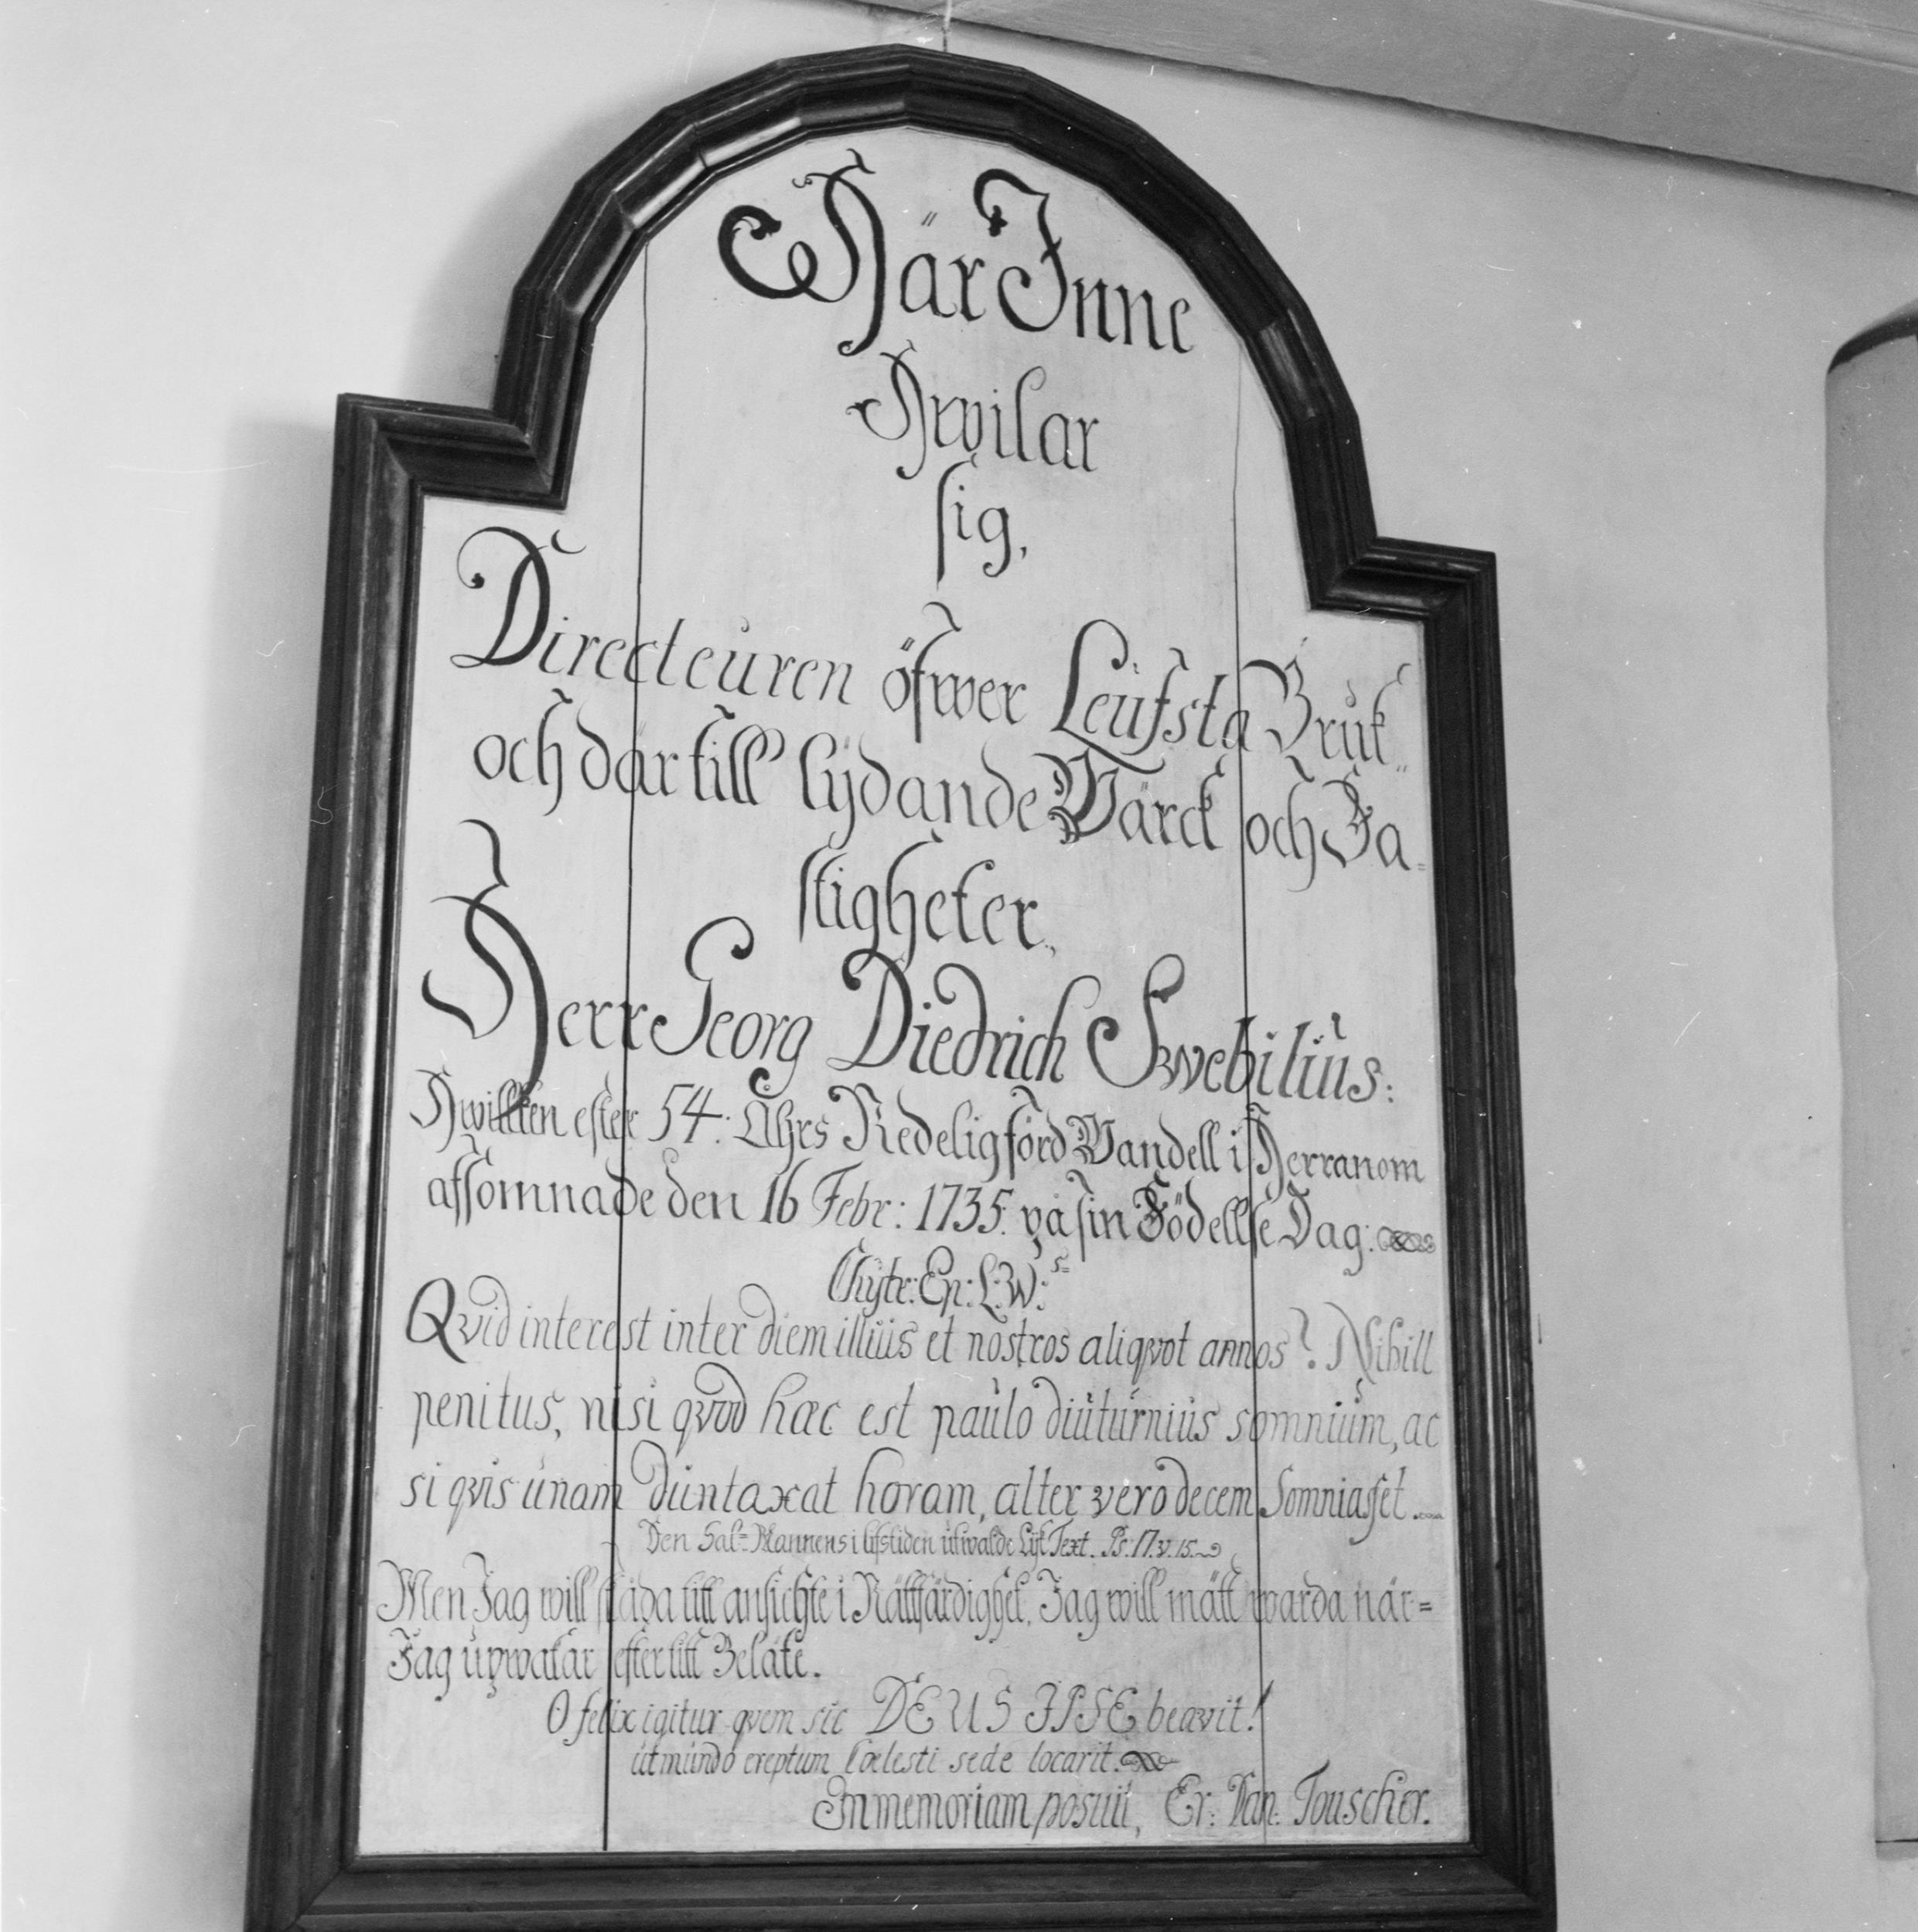 Här Inne
Hwilar
sig,
Directeuren öfwer Leufsta Bruk
och där till lÿdande Wärck och Fa=
stigheter.
Herr Georg Diedrich Swebilius:
Hwilken efter 54: Åhrs Redeligförd Wandell i Herranom
afsomnade den 16 Febr: 1735. på sin Födellse Dag:
Chÿtr: Ep: L: W:s=
Qvid interest inter diem illius et nostros aliqvot annos? Nihill
penitus, nisi qvod hæc est paulo diuturnius somnium, ac
si qvis unam duntaxat horam, alter vero decem Somniasset.
Den Sal= Mannens i lifstiden utwalde Lijk Text. Ps: 17. v. 15.
Men Jag will skåda titt ansichte i Rättfärdighet. Jag will mätt warda när=
Jag upwakar efter titt Beläte.
O felix igitur qvem sic DEUS IPSE beavit!
ut mundo ereptum Coelesti sede locarit.
In memoriam posuit, Er: Dan: Touscher.